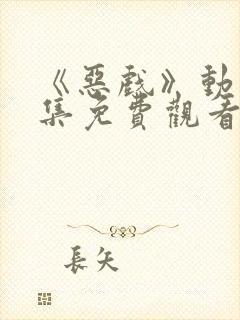 《惡戲》動
集免費觀看
長矢